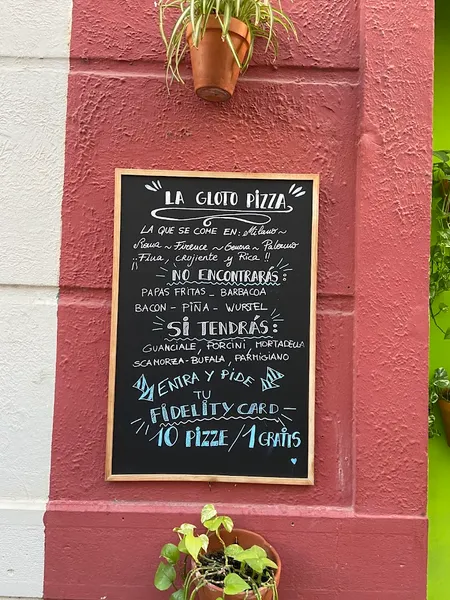 LA GLOTO PIZZA
LA QUE SE COME EN: Milano ~
Roma ~ Firence ~ Genova ~ Palermo
¡¡Fina, crojiente y Rica!!
NO ENCONTRARÁS:
PAPAS FRITAS _ BARBACOA
BACON - PIÑA - WURSTEL
SI TENDRÁS:
GUANCIALE, PORCINI, MORTADELLA
SCAMORZA - BUFALA, PARMIGIANO
ENTRA Y PIDE
TU
FIDELITY CARD
10 PIZZE / 1 GRATIS